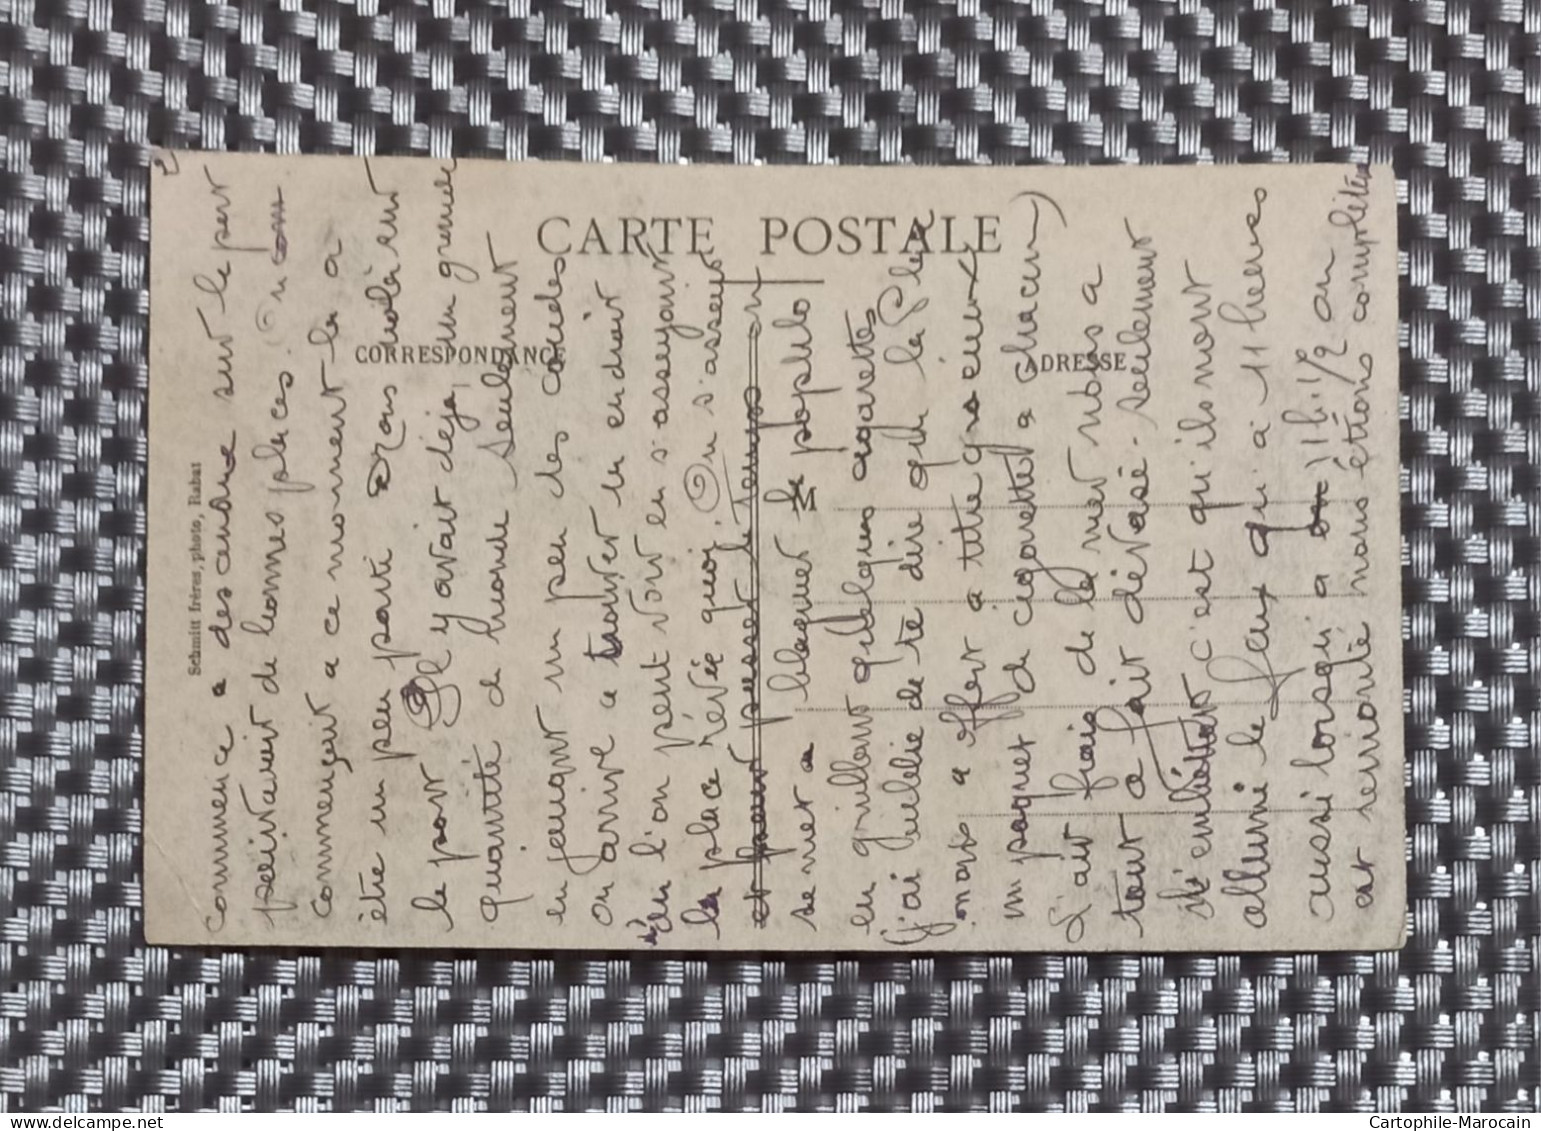 CARTE POSTALE
CORRESPONDANCE
ADRESSE
M
Schmitt frères, photo, Rabat
2
commence a descendre sur le port
de bonnes places. On
commençant a ce moment la a
être un peu parti Nous voilà sur
le port Il y avait déjà une grande
quantité de monde seulement
en jouant un peu des coudes
on arrive a trouver un endroit
d'où l'on peut voir en s'asseyant
la place rêvée quoi. On s'asseoit
et pour passer le temps on
se met a blaguer le populo
en grillant quelques cigarettes
(j'ai oublié de te dire que la Ple
nous a offert a titre gracieux
un paquet de cigarettes a chacun)
L'air frais de la mer nous a
tout a fait dévasé. seulement
l'embêtant c'est qu'ils n'ont
allumé le feux qu'a 11 heures
aussi lorsqu'a 11h 1/2 on
est remonté nous étions complètem
Cartophile-Marocain